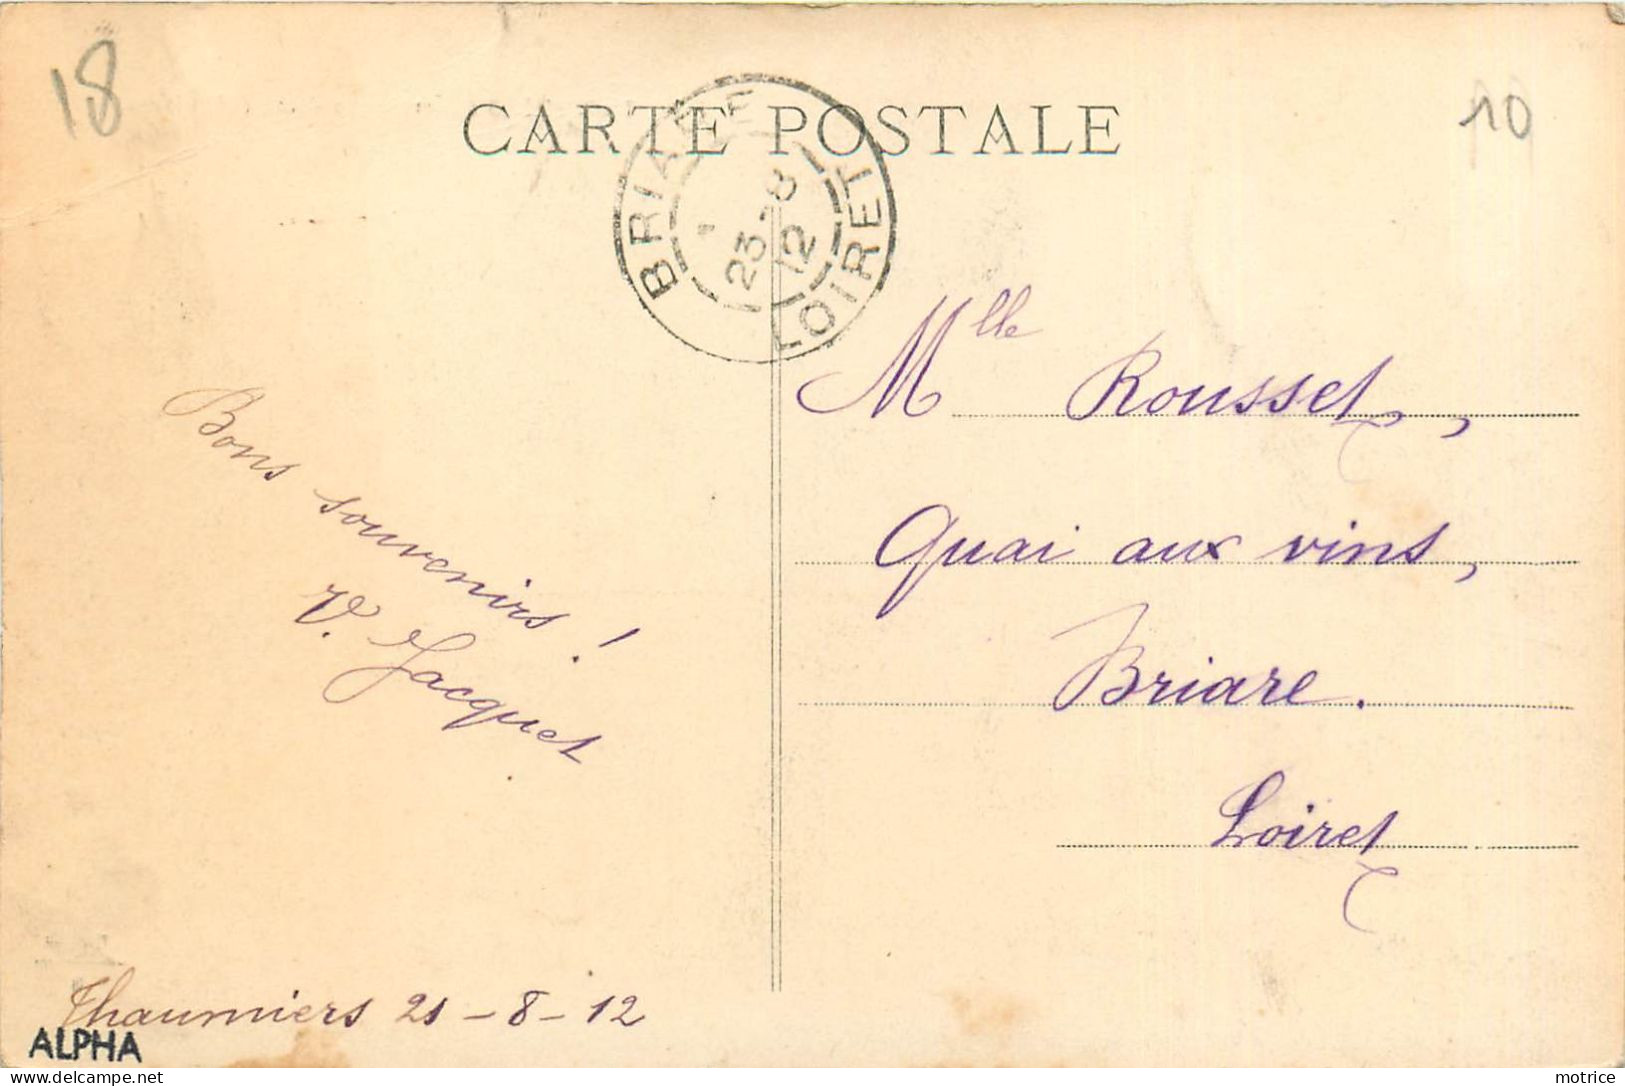 18
10
CARTE POSTALE
BRIARE
23-8
12
LOIRET
Mlle Rousset,
Quai aux vins,
Briare.
Loiret
Bons souvenirs !
V. Jacquet
Thaumiers 21-8-12
ALPHA
delcampe.net
motrice